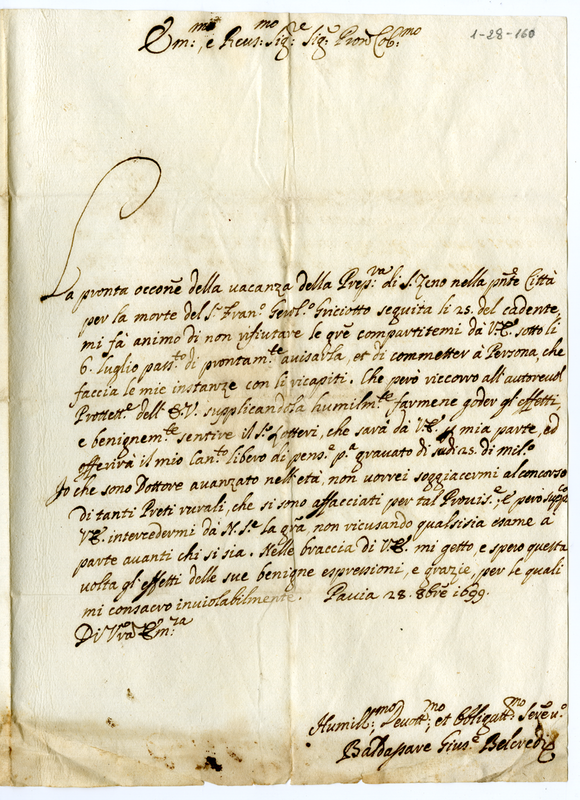 1-28-160
Em:mo, e Reu:mo Sig:re Sig:e Pron Col:mo
La pronta occoñe della vacanza della Prep:va di S. Zeno nella pñte Città
per la morte del S.r Fran.o Griciotto seguita li 25. del cadente,
mi fà animo di non rifiutare le grẽ compartitemi da V.E. sotto li
6. luglio pass:to di prontam:te auisarla, et di commetter à Persona, che
faccia le mie instanze con li ricapiti. Che però riccorro all'autoreuol
Prottett.e dell'E.V. supplicandola humilm:te farmene goder gl'effetti
e benignem:te sentire il S.r Lotteri, che sarà da V.E. mia parte, ed
offerirà il mio Can:to libero di pens.e p.a grauato di scudi 25. di mil.o
Io che sono Dottore auanzato nell'età, non uorrei soggiacermi al concorso
di tanti Preti rurali, che si sono affacciati per tal Prouis.e, e però supp.co
V.E. intercedermi da N.S.e la grã, non ricusando qualsisia esame à
parte auanti chi si sia. Nelle braccia di V.E. mi getto, e spero questa
uolta gl'effetti delle sue benigne espressioni, e grazie, per le quali
mi consacro inuiolabilmente. Pauia 28. 8bre 1699.
Di Vrã Em:za
Humill:mo Deuott:mo et Obligatt:mo Seru.e
Baldassare Gius.e Belcredi